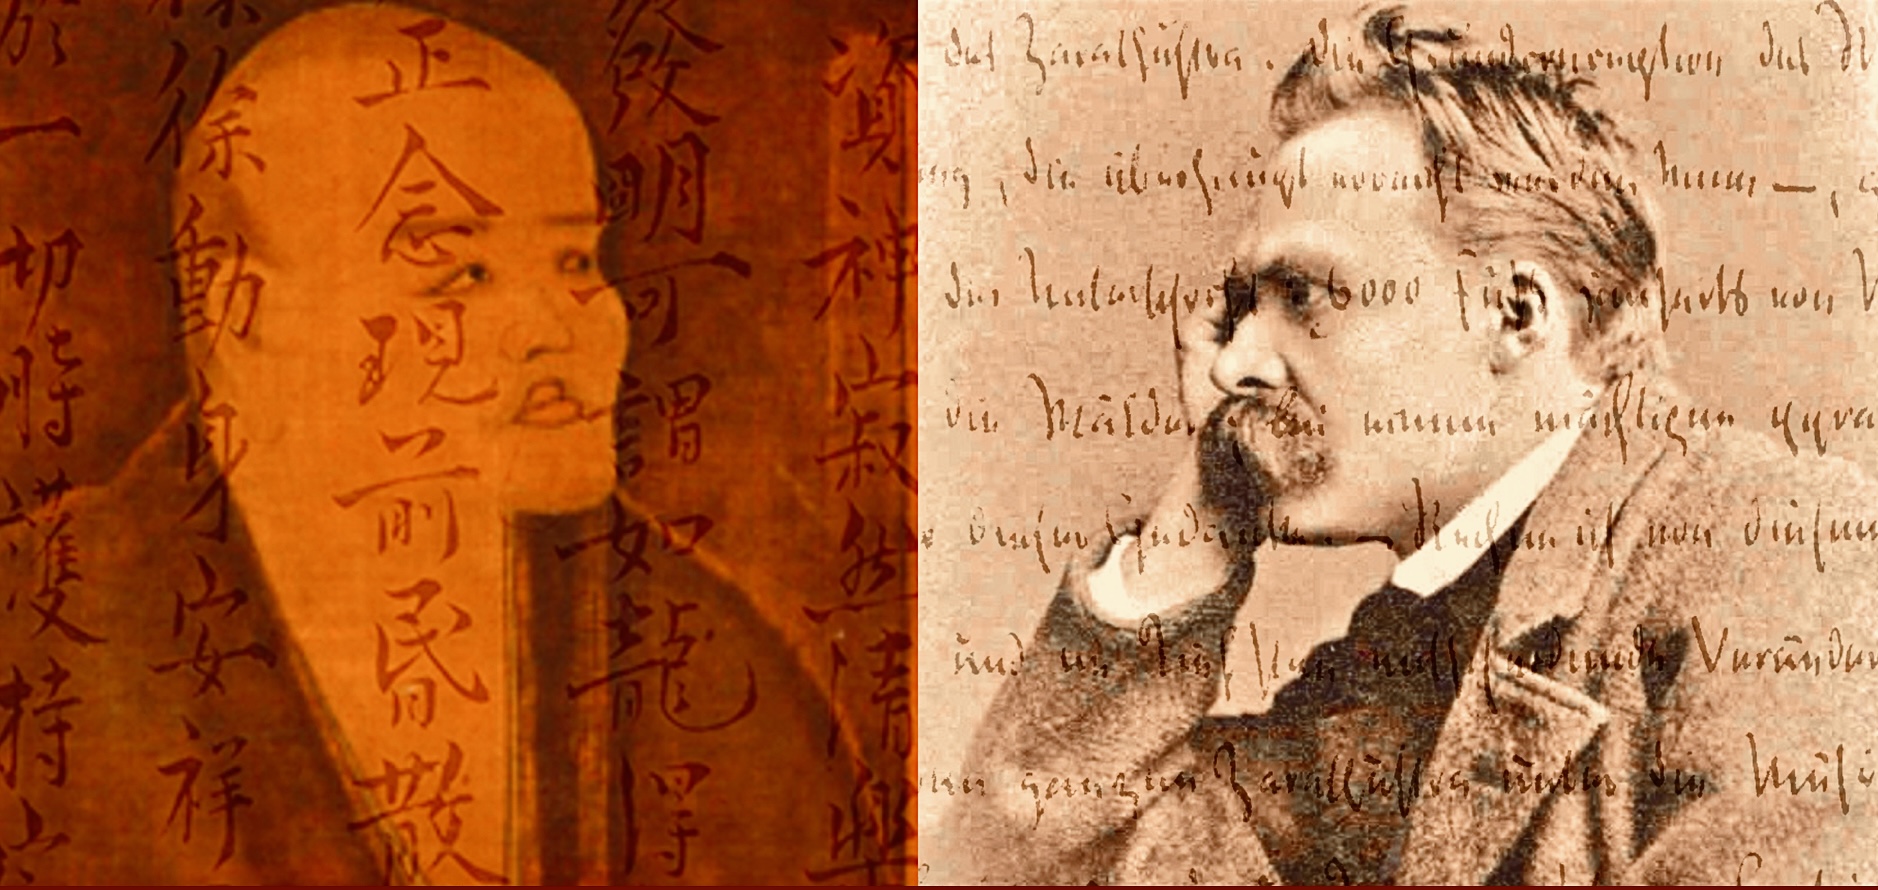 資神寂然清樂
發明可謂如龍得
正念現前昏散
徐徐動身安祥
於一切時護持
des Zarathustra. Die Grundconception des
ung, die überhaupt erreicht werden kann —,
der Unterschrift: 6000 Fuss jenseits von
die Wälder bei einem mächtigen pyra
dieser Gedanke. — Rechne ich von diesem
und im entscheidende Veränderu
den ganzen Zarathustra unter die Musi